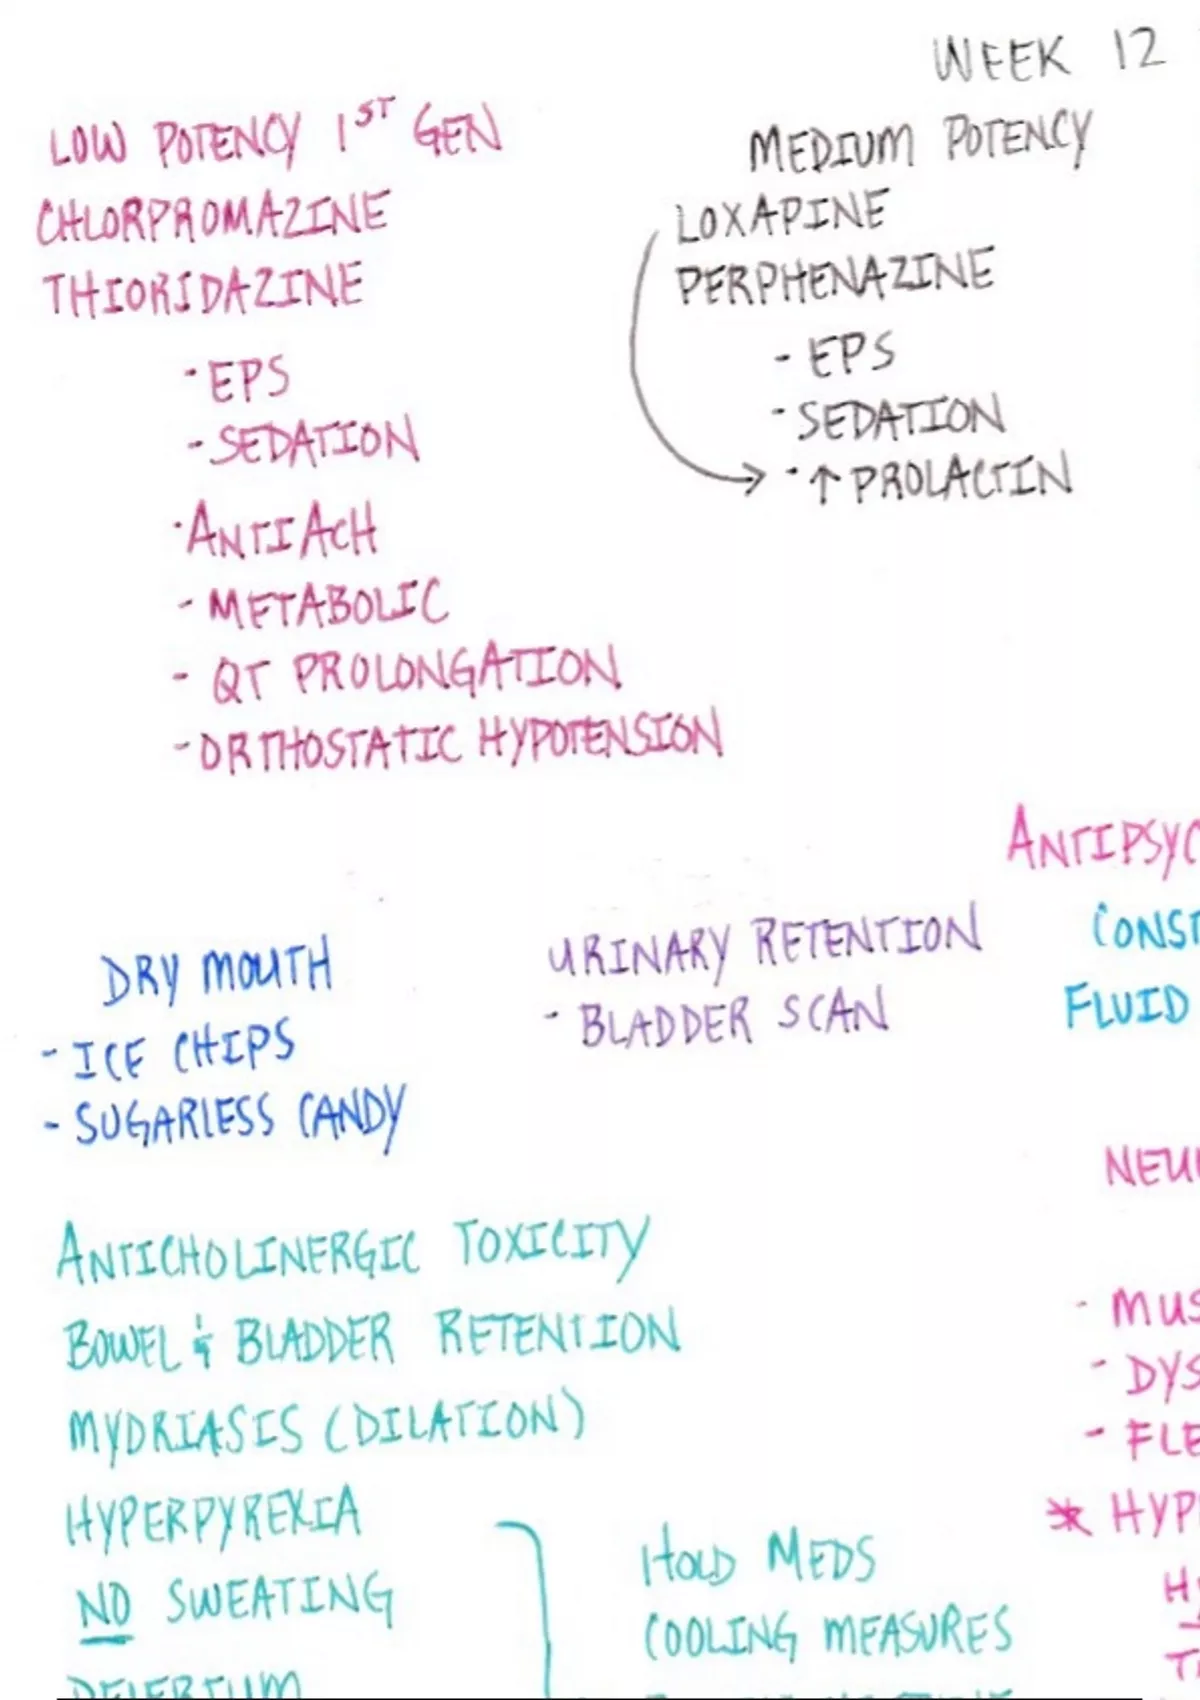 WEEK 12
LOW POTENCY 1ST GEN
CHLORPROMAZINE
THIORIDAZINE
- EPS
- SEDATION
- ANTIACH
- METABOLIC
- QT PROLONGATION
- ORTHOSTATIC HYPOTENSION
MEDIUM POTENCY
LOXAPINE
PERPHENAZINE
- EPS
- SEDATION
- ↑ PROLACTIN
ANTIPSYC
DRY MOUTH
- ICE CHIPS
- SUGARLESS CANDY
URINARY RETENTION
- BLADDER SCAN
CONST
FLUID
ANTICHOLINERGIC TOXICITY
BOWEL & BLADDER RETENTION
MYDRIASIS (DILATION)
HYPERPYREXIA
NO SWEATING
DELERIUM
HOLD MEDS
COOLING MEASURES
NEU
- MUS
- DYS
- FLE
* HYP